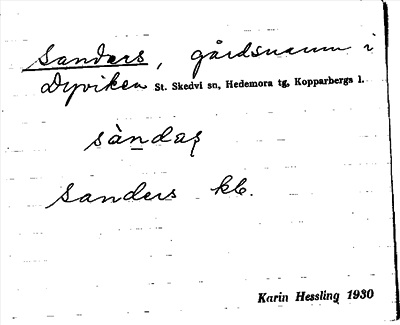 Sanders, gårdsnamn i
Dyviken St. Skedvi sn, Hedemora tg, Kopparbergs l.
sàndaʂ
Sanders kb.
Karin Hessling 1930